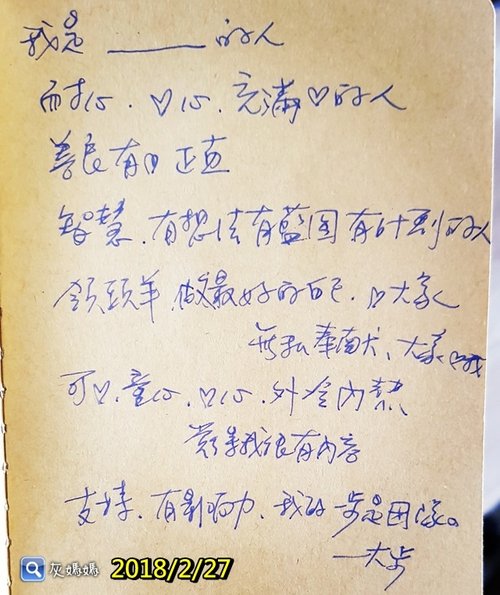 我是 ______ 的人
耐心、♡心、充滿♡的人
善良有 正直
智慧、有想法有藍图有计划的人
領頭羊、做最好的自己、♡大家
無私奉献、大家♡我
可♡、童心、♡心、外冷內熱
我很有內容
支持、有影响力、我的一步是团隊的
一大步
灰媽媽 2018/2/27